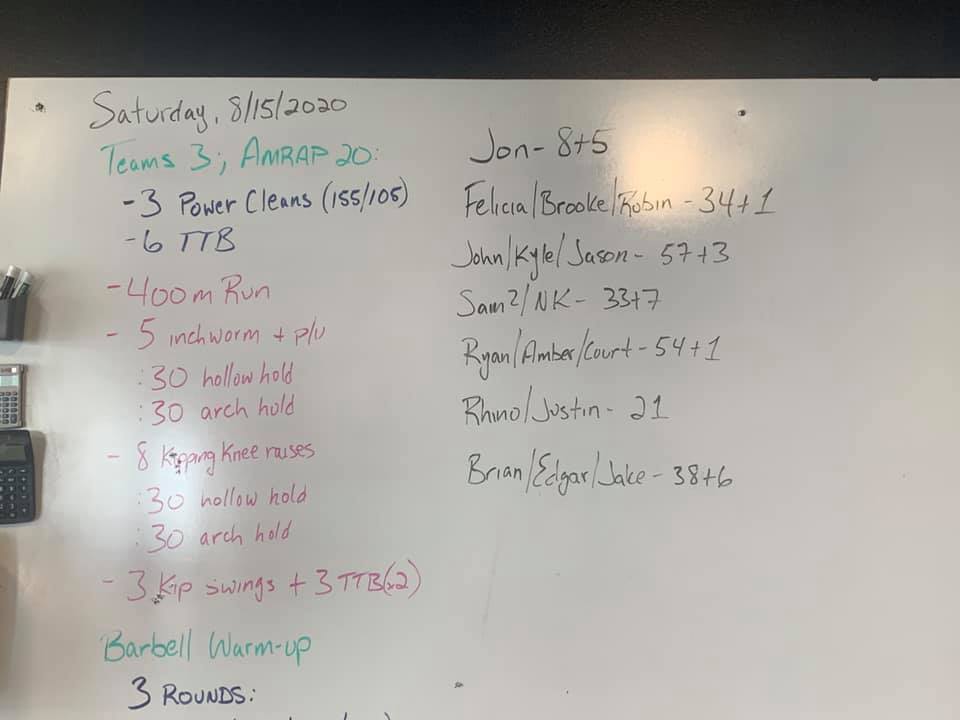 Saturday, 8/15/2020
Teams 3; AMRAP 20:
-3 Power Cleans (155/105)
-6 TTB
-400m Run
- 5 inchworm + p/u
:30 hollow hold
:30 arch hold
- 8 Kipping Knee raises
:30 hollow hold
:30 arch hold
- 3 Kip swings + 3 TTB(x2)
Barbell Warm-up
3 ROUNDS:
Jon- 8+5
Felicia/Brooke/Robin - 34+1
John/Kyle/Jason- 57+3
Sam²/NK- 33+7
Ryan/Amber/Court- 54+1
Rhino/Justin- 21
Brian/Edgar/Jake- 38+6